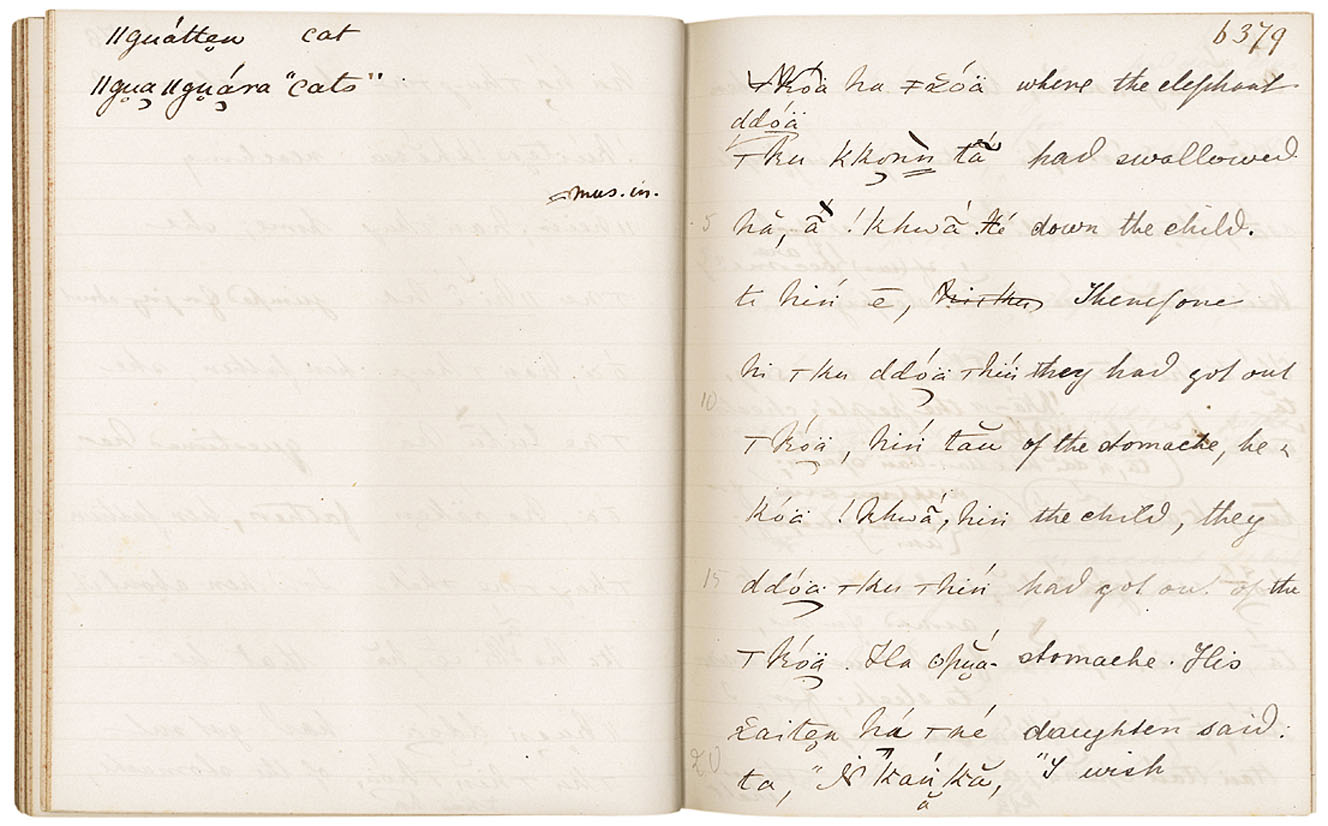 ǁguátten cat
ǁgua ǁguára "cats"
mus. in.
6379
ha where the elephant
ddóä
ku kkoṅṅ tã́ had swallowed
5 hă, ã !khwã́ down the child.
ti hiṅ ē, Therefore
hi ku ddóä hiṅ they had got out
10
kóä, hiṅ tău of the stomache, he &
kóä !khwã́, hiṅ the child, they
15 ddóä ku hiṅ had got out of the
kóä. Ha ʘpuá- stomache. His
χaiten há né daughter said:
20 ta, "Ṅ kaṅ kă, "I wish